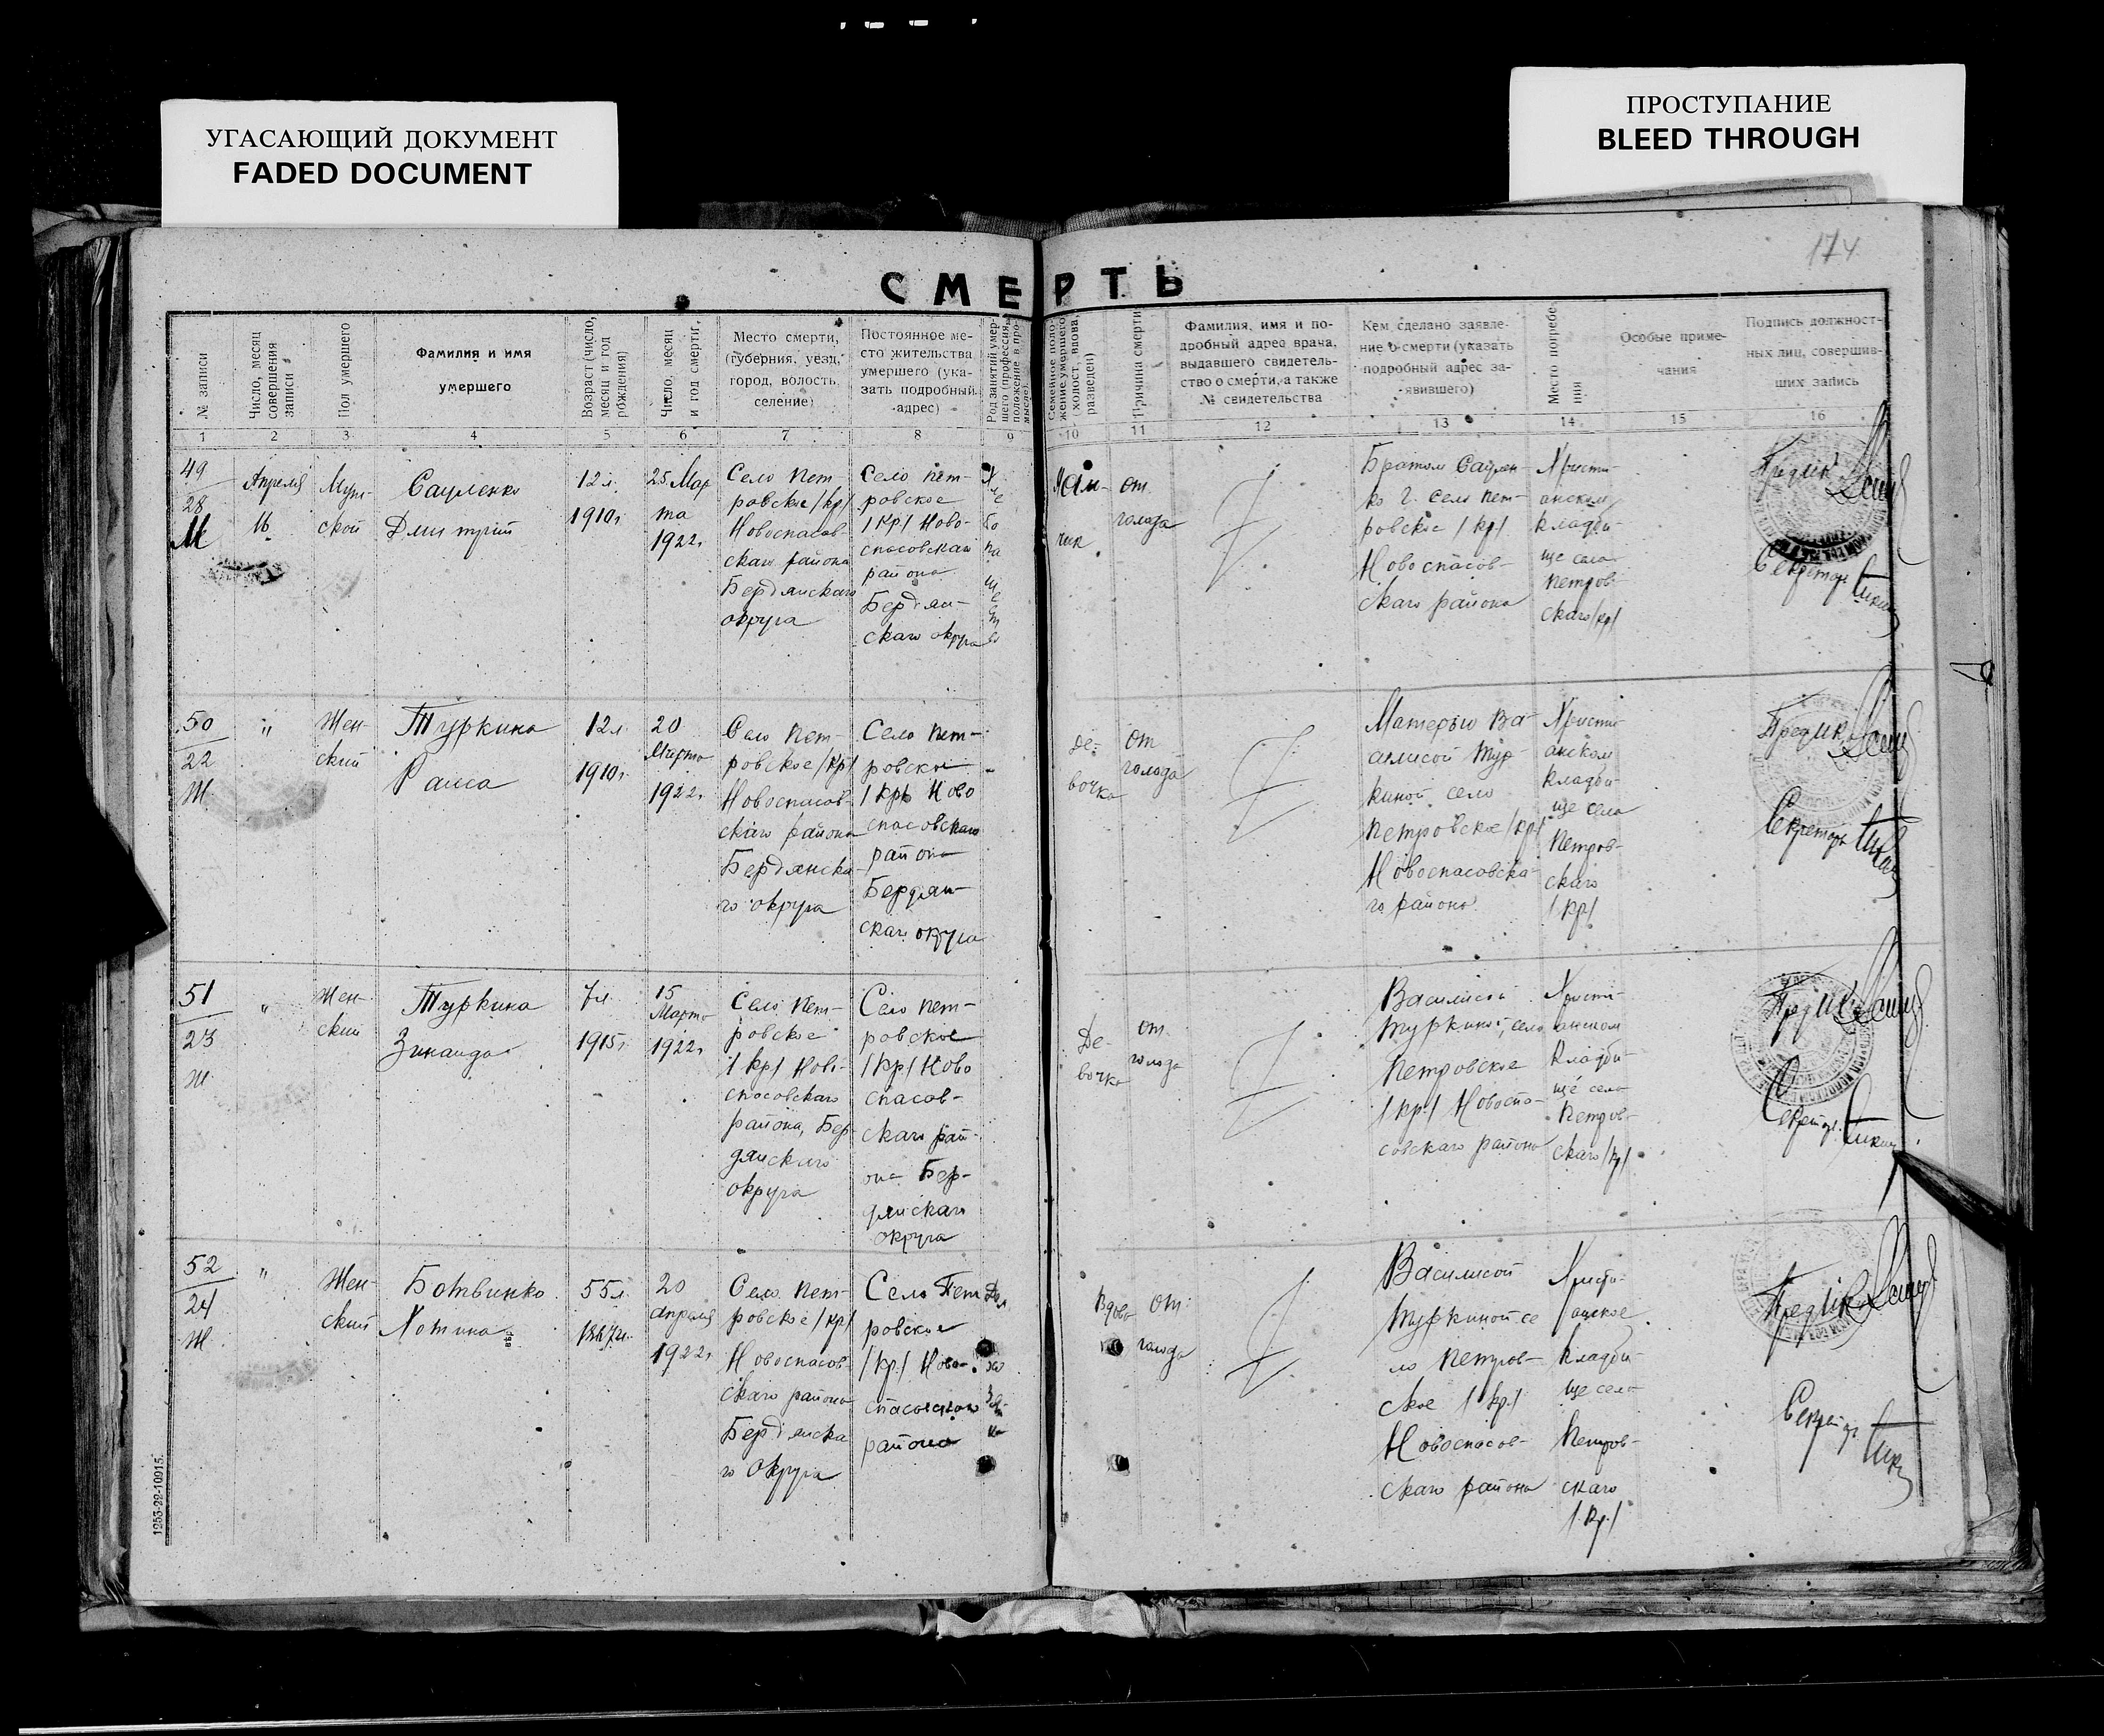 УГАСАЮЩИЙ ДОКУМЕНТ
FADED DOCUMENT
ПРОСТУПАНИЕ
BLEED THROUGH
174
СМЕРТЬ
№ записи
Число, месяц
совершения
записи
Пол умершего
Фамилия и имя
умершего
Возраст (число,
месяц и год
рождения)
Число, месяц
и год смерти,
Место смерти,
(губерния, уезд,
город, волость,
селение)
Постоянное ме-
сто жительства
умершего (ука-
зать подробный
адрес)
Род занятий умер-
шего (профессия,
положение в про-
мысле).
жение умершего
(холост, вдова,
разведен)
Причина смерти
Фамилия, имя и по-
дробный адрес врача,
выдавшего свидетель-
ство о смерти, а также
№ свидетельства
Кем сделано заявле-
ние о смерти (указать
подробный адрес за-
явившего)
Место погребе-
ния
Особые приме-
чания
Подпись должност-
ных лиц, совершив-
ших запись
1 2 3 4 5 6 7 8 9 10 11 12 13 14 15 16
49
28
М
Апреля
Муж-
ской
Сауленко
Дмитрий
12 л.
1910 г.
25 Мар
та
1922 г.
Село Пет
ровское /кр/
Новоспасов-
скаго района
Бердянскаго
округа
Село Пет-
ровское
/кр/ Ново-
спасовскаго
района
Бердян-
скаго округа
от
голода
Братом Саулен-
ко Г. Село Пет-
ровское /кр/
Новоспасов-
скаго района
Христи-
анском
кладби-
ще села
Петров-
скаго /кр/
Секретарь
50
22
Ж.
"
Жен-
ский
Туркина
Раиса
12 л.
1910 г.
20
Марта
1922 г.
Село Пет-
ровское /кр/
Новоспасов-
скаго района
Бердянска-
го округа
Село Пет-
ровское
/кр/ Ново
спасовскаго
района
Бердян-
скаго округа
Де-
вочка
от
голода
Матерью Ва-
силисой Тур-
киной село
Петровское /кр/
Новоспасовска-
го района
Христи-
анском
кладби-
ще села
Петров-
скаго
/кр/
Секретарь
51
23
Ж.
"
Жен-
ский
Туркина
Зинаида
7 л.
1915 г.
15
Марта
1922 г.
Село Пет-
ровское
/кр/ Ново-
спасовскаго
района, Бер-
дянскаго
округа
Село Пет-
ровское
/кр/ Ново
спасов-
скаго рай-
она Бер-
дянскаго
округа
Де-
вочка
от
голода
Василисой
Туркиной, село
Петровское
/кр/ Новоспа-
совскаго района
Христи-
анском
кладби-
ще села
Петров-
скаго /кр/
52
24
Ж.
"
Жен-
ский
Ботвинко
55 л.
20
апреля
1922 г.
Село Пет-
ровское /кр/
Новоспасов-
скаго района
Бердянска
го округа
Село Пет
ровское
/кр/ Ново-
спасовскаго
района
Вдова
от
голода
Василисой
Туркиной се
ло Петров-
ское /кр/
Новоспасов-
скаго района
Христи-
анское
кладби-
ще села
Петров-
скаго
/кр/
1253-22-10915.